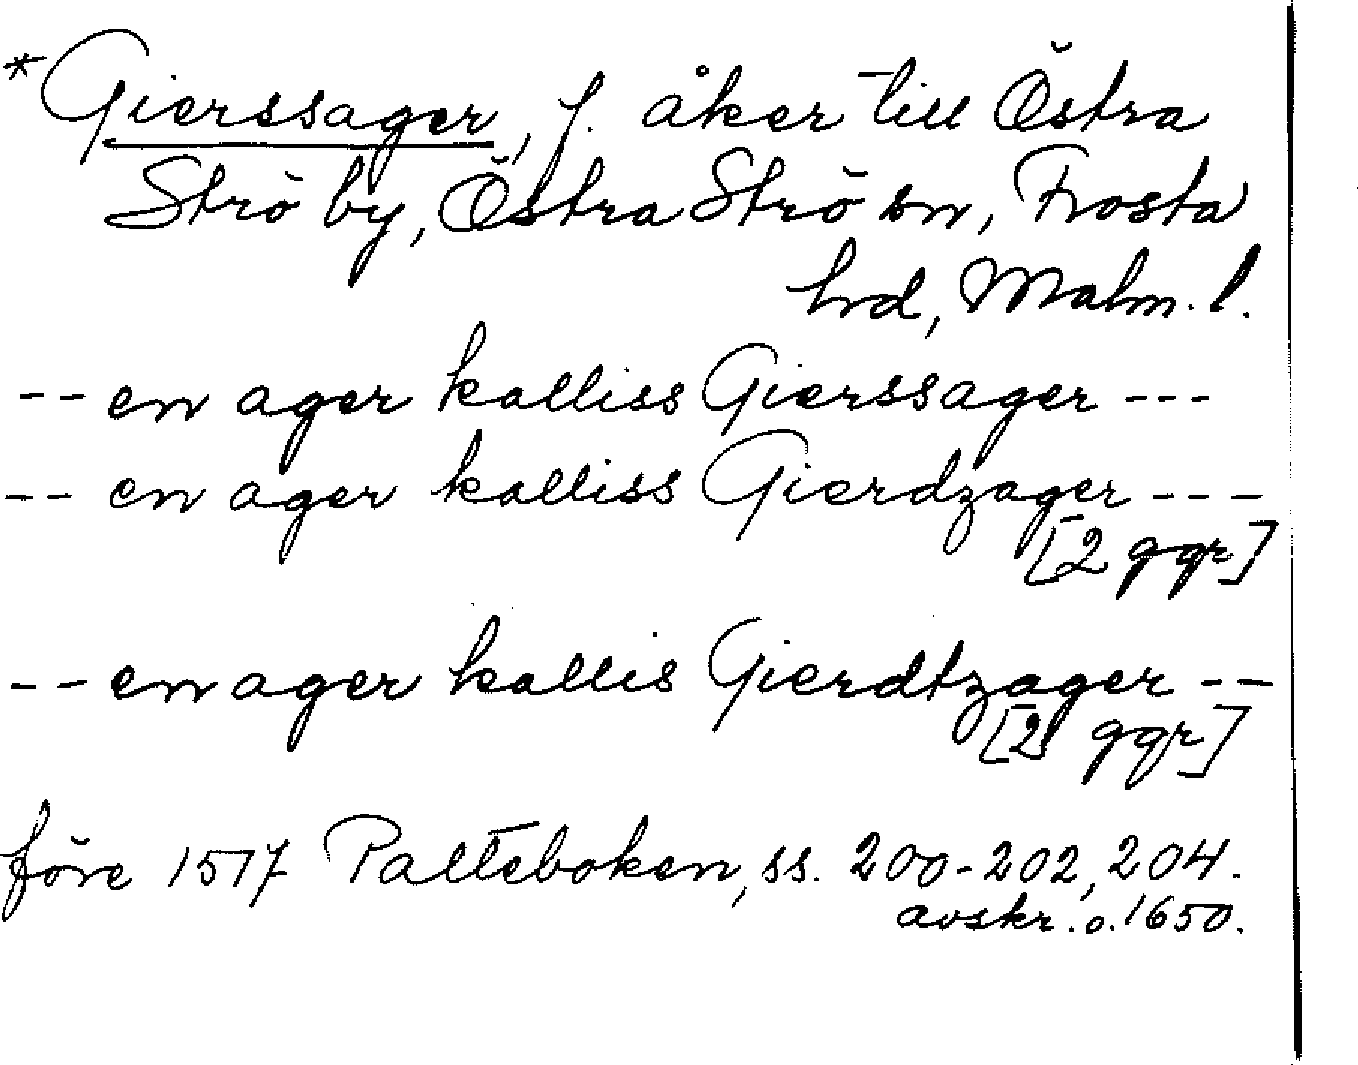 *Gierssager, f. åker till Östra
Strö by, Östra Strö sn, Frosta
hrd, Malm. l.
-- en ager kalliss Gierssager ---
-- en ager kalliss Gierdzager ---
[2 ggr]
-- en ager kallis Gierdtzager --
[2 ggr]
före 1517 Palteboken, ss. 200-202, 204.
avskr. o. 1650.